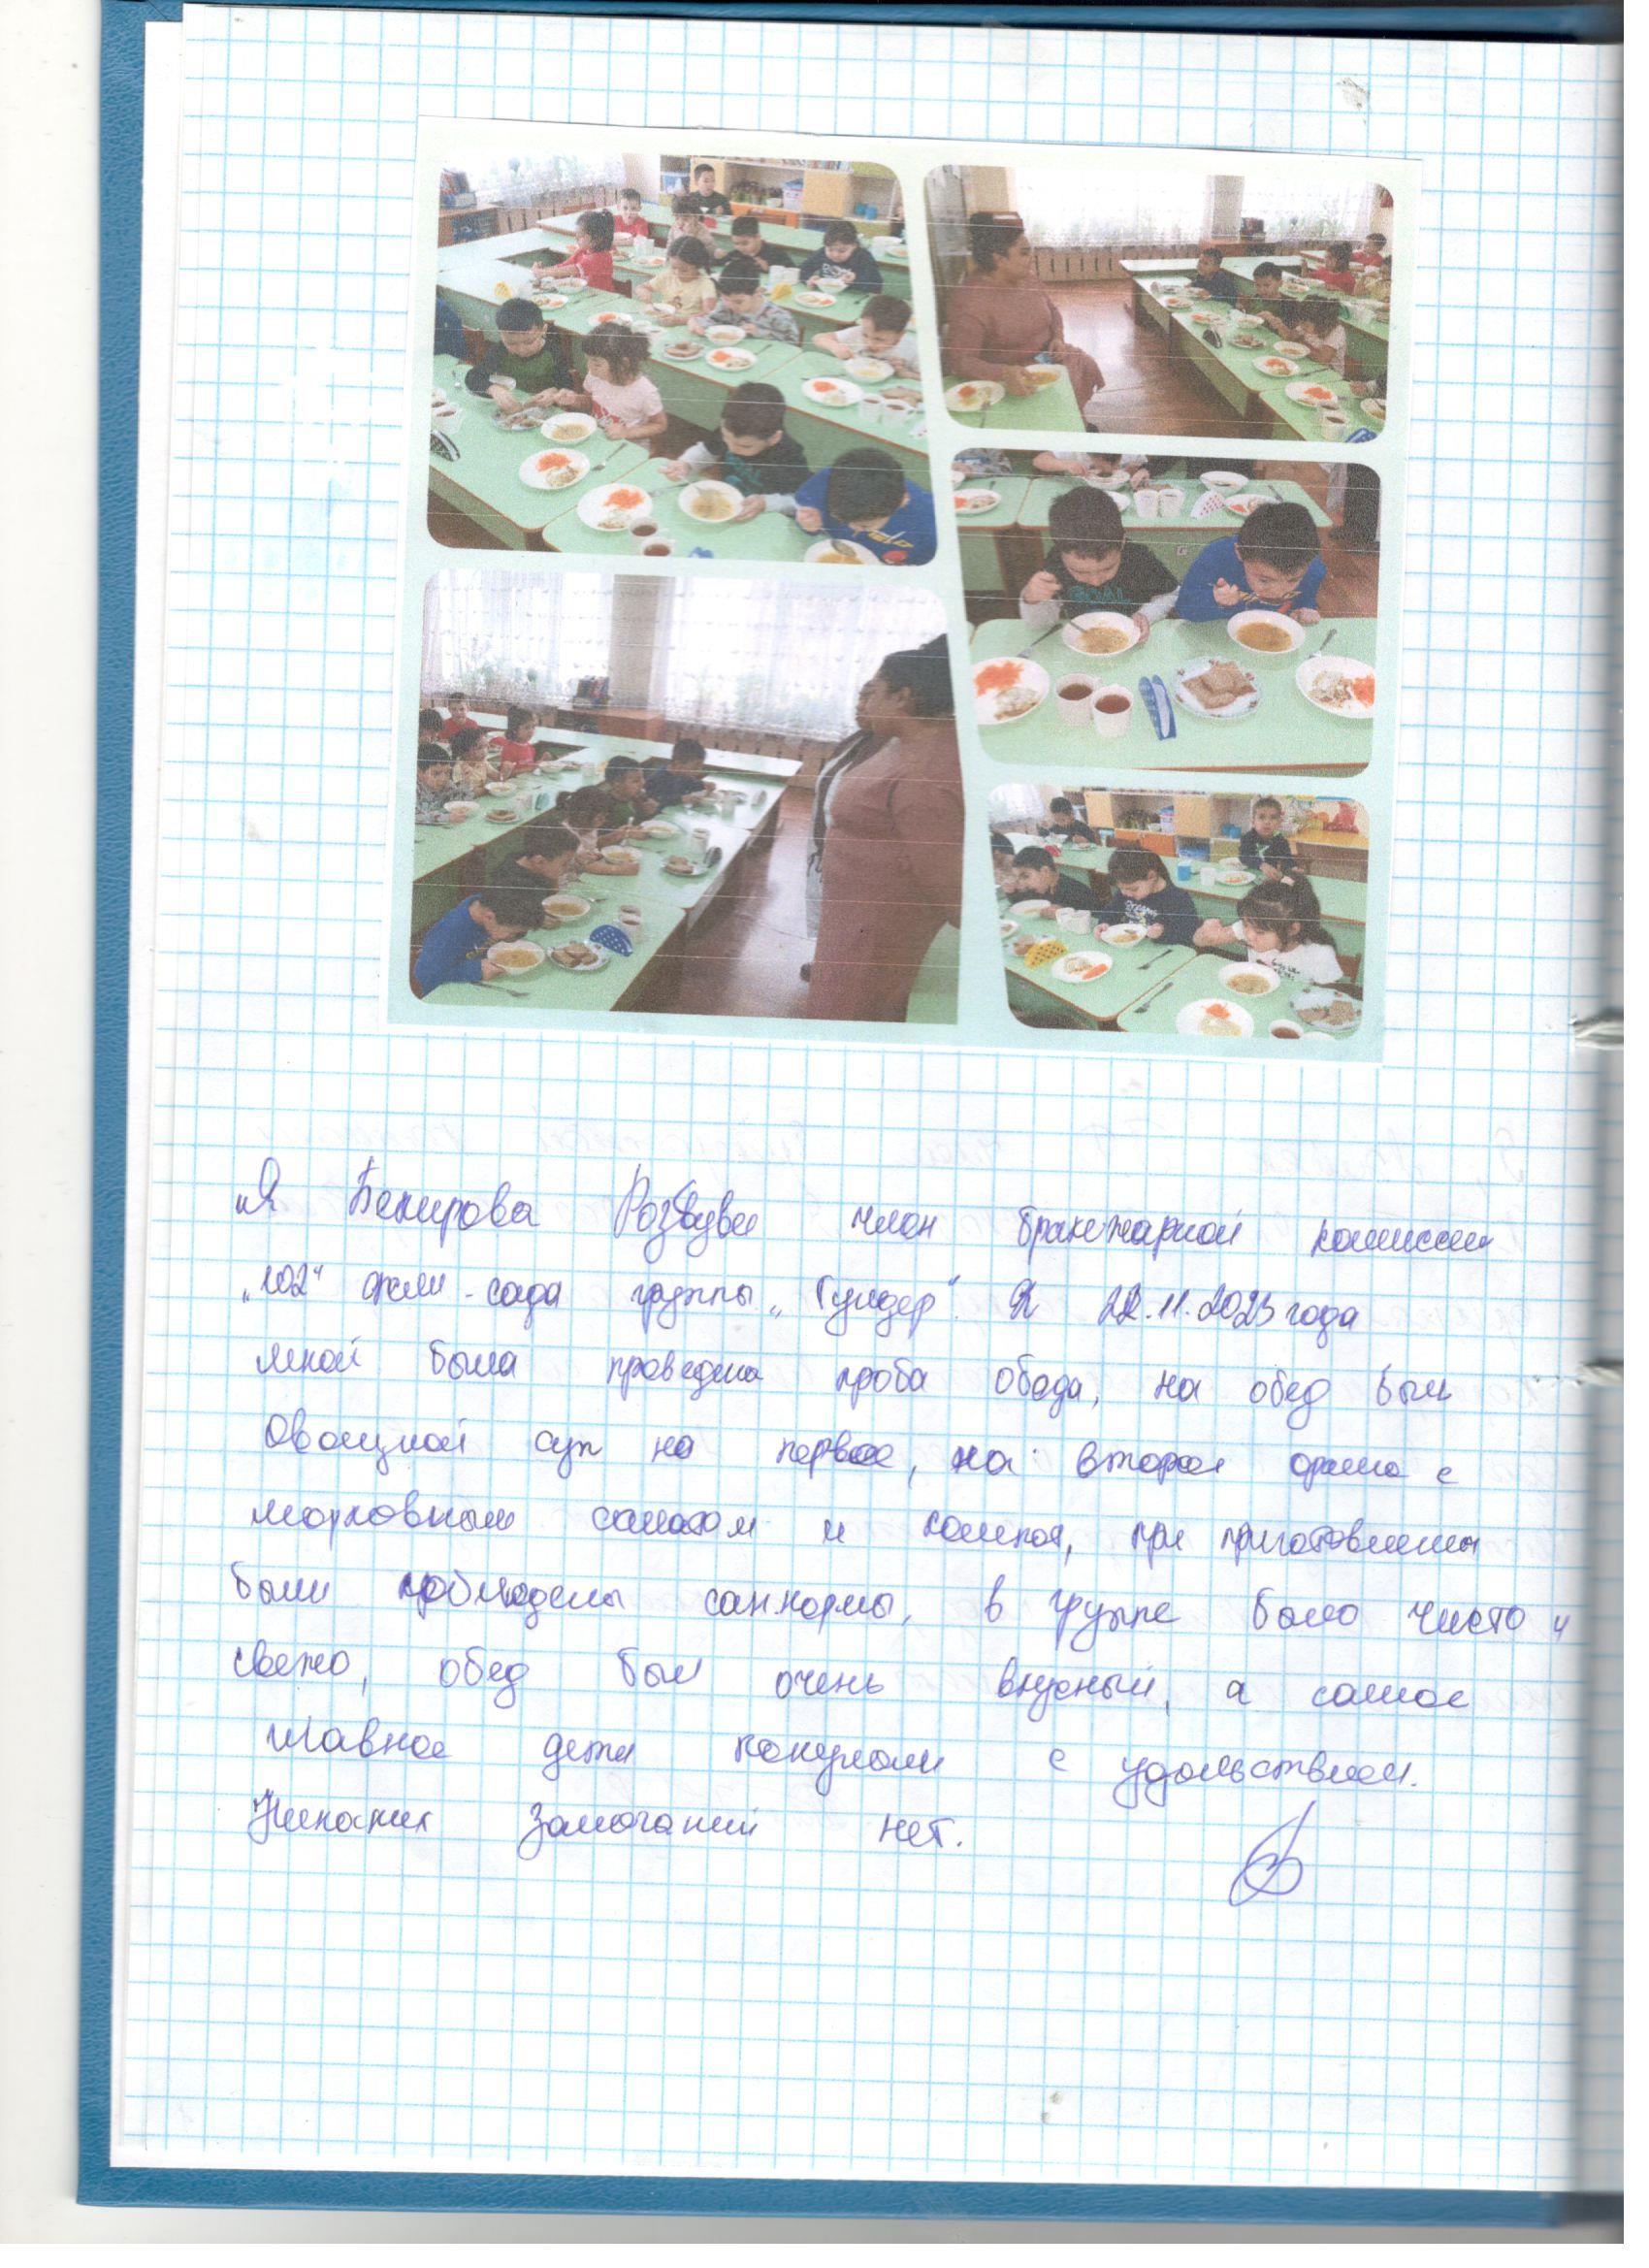 „Я Бекирова член бракеражной комиссии
„102" ясли-сада группы „Гулдер". Я 22.11.2023 года
мной была проведена проба обеда, на обед был
Овощной суп на первое, на второе с
морковным салатом и компот, при приготовлении
были соблюдены сан.нормы, в группе было чисто и
свежо, обед был очень вкусный, а самое
главное дети покушали с удовольствием.
Никаких замечаний нет.